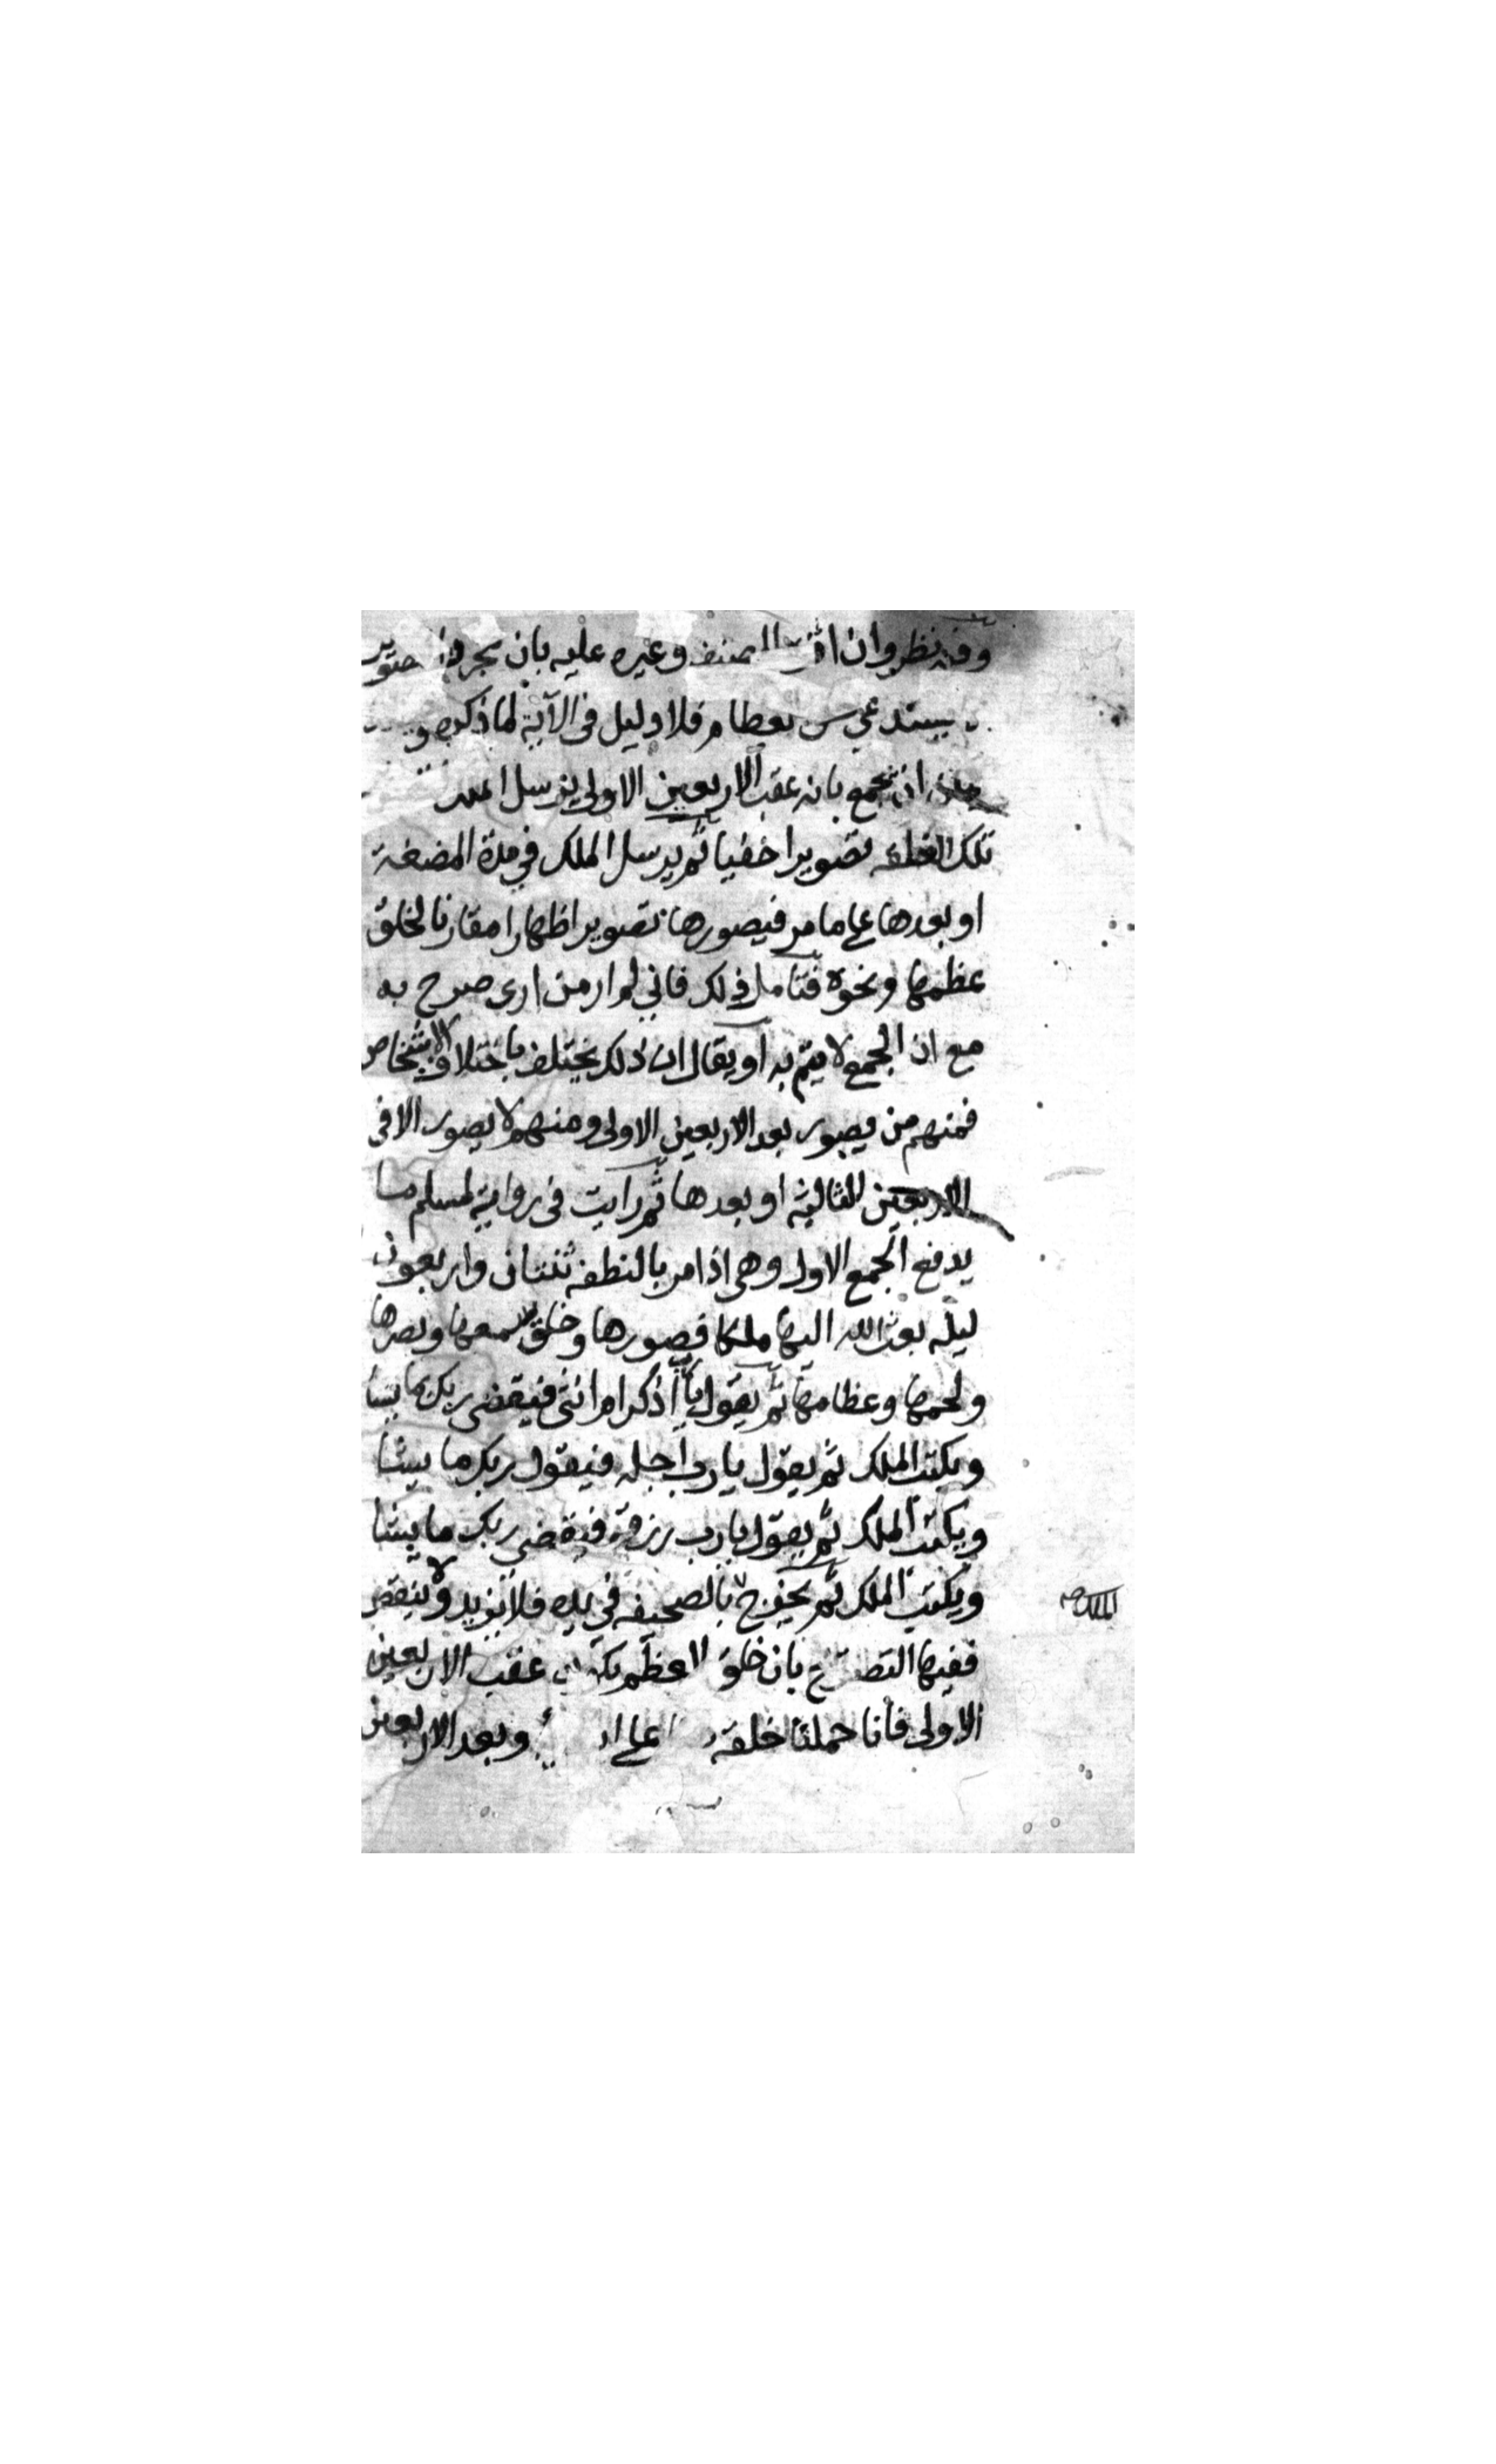 وفيه نظر وان المصنف وغيره عليه بان مجرد
يستدعي فلا دليل في الآية لما ذكره
ان يجمع بانه عقب الاربعين الاولى يرسل الملك
تلك العلقة تصويرا خفيا ثم يرسل الملك في مدة المضغة
او بعدها على ما مر فيصورها تصويرا ظهارا مقارنا لخلق
عظمها ونحوه فتامل ذلك فاني لم ار من ارى صرح به
مع ان الجمع لا يتم به او يقال ان ذلك يختلف باختلاف الاشخاص
فمنهم من يصور بعد الاربعين الاولى ومنهم لا يصور الا في
الاربعين الثالثة او بعدها ثم رايت في رواية لمسلم ما
يدفع الجمع الاول وهي اذا مر بالنطفة ثنتان واربعون
ليله بعث الله اليها ملكا فصورها وخلق سمعها وبصرها
ولحمها وعظامها ثم يقول يا رب اذكر ام انثى فيقضي ربك ما يشا
ويكتب الملك ثم يقول يا رب اجله فيقول ربك ما يشا
ويكتب الملك ثم يقول يا رب رزقه فيقضي ربك ما يشا
ويكتب الملك ثم يخرج بالصحيفه في يده فلا يزيد ولا ينقص
الملك
ففيها التصريح بان خلق العظم يكون عقب الاربعين
الاولى فانا حملنا خلقه على وبعد الاربعين